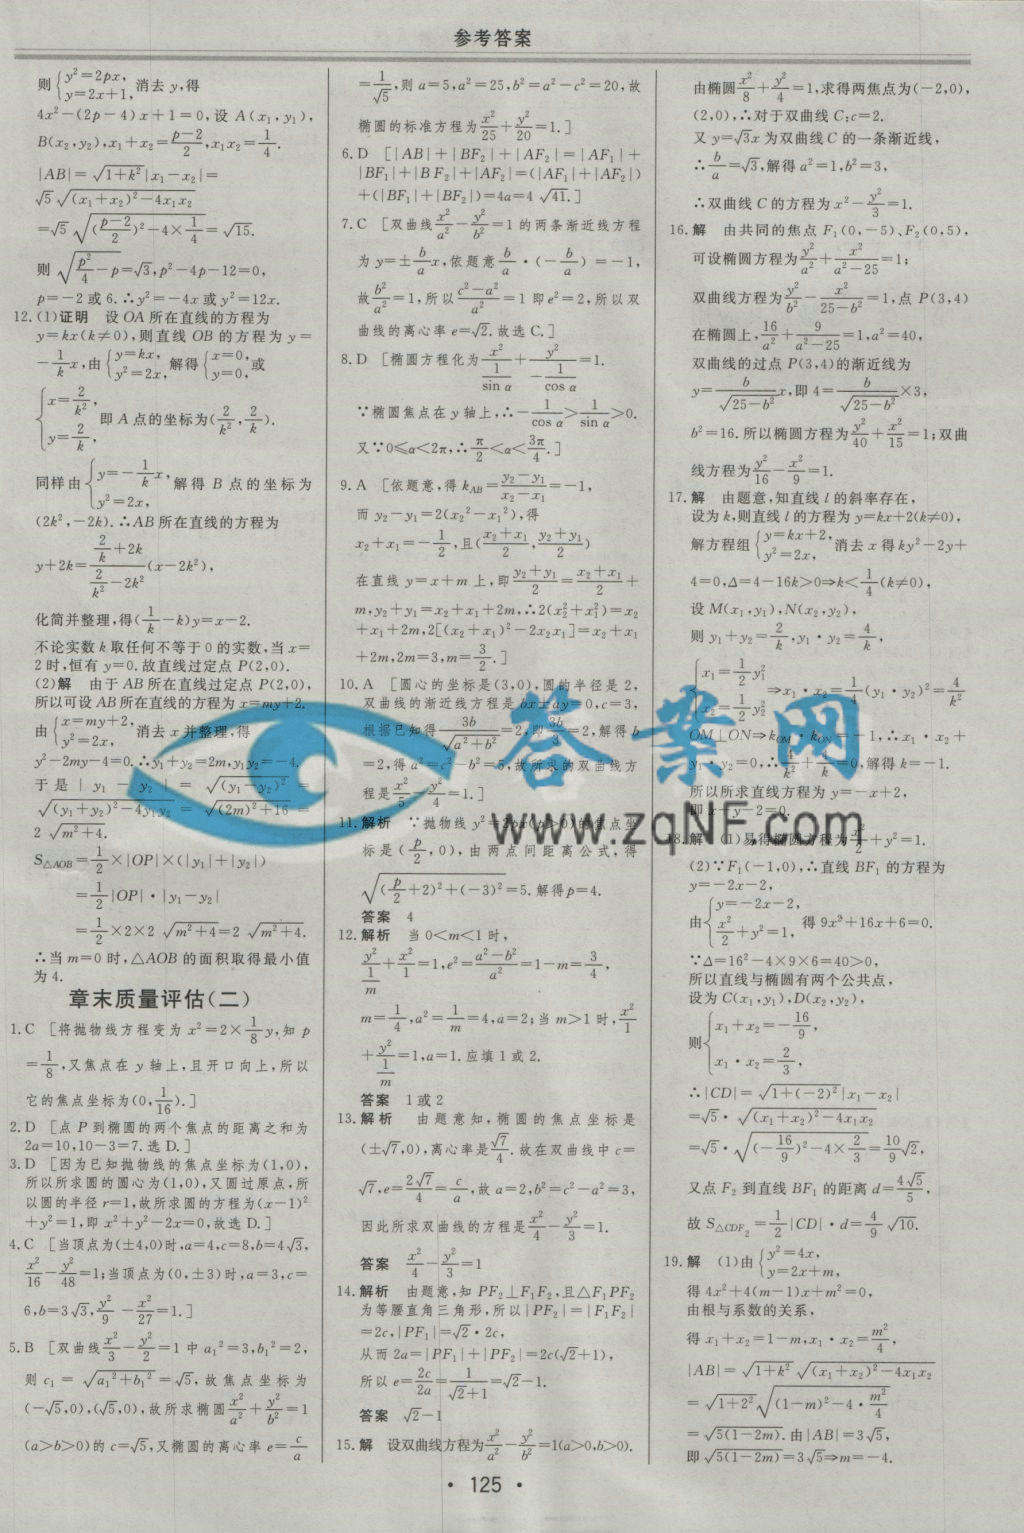 参考答案
则{y²=2px, y=2x+1, 消去 y,得
4x²-(2p-4)x+1=0,设 A(x₁,y₁),
B(x₂,y₂),x₁+x₂=(p-2)/2,x₁x₂=1/4.
|AB|=√(1+k²)|x₁-x₂|=
√5√((x₁+x₂)²-4x₁x₂)
=√5√(((p-2)/2)²-4×1/4)=√15.
则√(p²/4-p)=√3,p²-4p-12=0,
p=-2或6.∴y²=-4x或y²=12x.
12.(1)证明 设 OA 所在直线的方程为
y=kx(k≠0),则直线 OB 的方程为 y=
-1/k x,由{y=kx, y²=2x, 解得{x=0, y=0,或
{x=2/k², y=2/k, 即 A 点的坐标为(2/k²,2/k).
同样由{y=-1/k x, y²=2x, 解得 B 点的坐标为
(2k²,-2k).∴AB所在直线的方程为
y+2k=(2/k+2k)/(2/k²-2k²)(x-2k²),
化简并整理,得(1/k-k)y=x-2.
不论实数 k 取任何不等于0的实数,当 x=
2时,恒有 y=0.故直线过定点 P(2,0).
(2)解 由于AB所在直线过定点 P(2,0),
所以可设AB所在直线的方程为x=my+2.
由{x=my+2, y²=2x, 消去 x 并整理,得
y²-2my-4=0.∴y₁+y₂=2m,y₁y₂=-4.
于是 |y₁-y₂|=√((y₁-y₂)²)=
√((y₁+y₂)²-4y₁y₂)=√((2m)²+16)=
2√(m²+4).
S△AOB=1/2×|OP|×(|y₁|+|y₂|)
=1/2|OP|·|y₁-y₂|
=1/2×2×2√(m²+4)=2√(m²+4).
∴当 m=0 时,△AOB 的面积取得最小值
为4.
章末质量评估(二)
1.C [将抛物线方程变为 x²=2×1/8 y,知 p
=1/8,又焦点在 y 轴上,且开口向上,所以
它的焦点坐标为(0,1/16).]
2.D [点 P 到椭圆的两个焦点的距离之和为
2a=10,10-3=7.选D.]
3.D [因为已知抛物线的焦点坐标为(1,0),
所以所求圆的圆心为(1,0),又圆过原点,所
以圆的半径 r=1,故所求圆的方程为(x-1)²
+y²=1,即 x²+y²-2x=0,故选D.]
4.C [当顶点为(±4,0)时,a=4,c=8,b=4√3,
x²/16-y²/48=1;当顶点为(0,±3)时,a=3,c=
6,b=3√3,y²/9-x²/27=1.]
5.B [双曲线x²/3-y²/2=1 中 a₁²=3,b₁²=2,
则 c₁=√(a₁²+b₁²)=√5,故焦点坐标为
(-√5,0),(√5,0),故所求椭圆x²/a²+y²/b²=1
(a>b>0)的 c=√5,又椭圆的离心率 e=c/a
=1/√5,则 a=5,a²=25,b²=a²-c²=20,故
椭圆的标准方程为x²/25+y²/20=1.]
6.D [|AB|+|BF₂|+|AF₂|=|AF₁|+
|BF₁|+|BF₂|+|AF₂|=(|AF₁|+|AF₂|)
+(|BF₁|+|BF₂|)=4a=4√41.]
7.C [双曲线x²/a²-y²/b²=1的两条渐近线方程
为 y=±b/a x,依题意b/a·(-b/a)=-1,
故b²/a²=1,所以(c²-a²)/a²=1即e²=2,所以双
曲线的离心率 e=√2.故选C.]
8.D [椭圆方程化为x²/(1/sin α)+y²/(-1/cos α)=1.
∵椭圆焦点在 y 轴上,∴-1/cos α>1/sin α>0.
又∵0≤α<2π,∴π/2<α<3π/4.]
9.A [依题意,得 kAB=(y₂-y₁)/(x₂-x₁)=-1,
而 y₂-y₁=2(x₂²-x₁²),得
x₂+x₁=-1/2,且((x₂+x₁)/2,(y₂+y₁)/2)
在直线 y=x+m 上,即(y₂+y₁)/2=(x₂+x₁)/2+
m,y₂+y₁=x₂+x₁+2m,∴2(x₂²+x₁²)=x₂
+x₁+2m,2[(x₂+x₁)²-2x₂x₁]=x₂+x₁
+2m,2m=3,m=3/2.]
10.A [圆心的坐标是(3,0),圆的半径是2,
双曲线的渐近线方程是 bx±ay=0,c=3,
根据已知得 3b/√(a²+b²)=2,即3b/3=2,解得 b
=2,得 a²=c²-b²=5,故所求的双曲线方
程是x²/5-y²/4=1.]
11.解析 ∵抛物线 y²=2px(p>0)的焦点坐
标是(p/2,0),由两点间距离公式,得
√((p/2+2)²+(-3)²)=5.解得p=4.
答案 4
12.解析 当0<m<1时,
y²/(1/m)+x²/1=1,e²=(a²-b²)/a²=1-m=3/4,
m=1/4,a²=1/m=4,a=2;当 m>1时,x²/1
+y²/(1/m)=1,a=1.应填1或2.
答案 1或2
13.解析 由题意知,椭圆的焦点坐标是
(±√7,0),离心率是√7/4.故在双曲线中 c=
√7,e=2√7/4=c/a,故 a=2,b²=c²-a²=3,
因此所求双曲线的方程是x²/4-y²/3=1.
答案 x²/4-y²/3=1
14.解析 由题意,知PF₂⊥F₁F₂,且△F₁PF₂
为等腰直角三角形,所以|PF₂|=|F₁F₂|
=2c,|PF₁|=√2·2c,
从而2a=|PF₁|+|PF₂|=2c(√2+1),
所以 e=2c/2a=1/(√2+1)=√2-1.
答案 √2-1
15.解 设双曲线方程为x²/a²-y²/b²=1(a>0,b>0).
由椭圆x²/8+y²/4=1,求得两焦点为(-2,0),
(2,0),∴对于双曲线 C:c=2.
又 y=√3x为双曲线 C 的一条渐近线,
∴b/a=√3,解得 a²=1,b²=3,
∴双曲线 C 的方程为 x²-y²/3=1.
16.解 由共同的焦点 F₁(0,-5)、F₂(0,5),
可设椭圆方程为y²/a²+x²/(a²-25)=1;
双曲线方程为y²/b²-x²/(25-b²)=1,点 P(3,4)
在椭圆上,16/a²+9/(a²-25)=1,a²=40,
双曲线的过点 P(3,4)的渐近线为
y=b/√(25-b²)x,即 4=b/√(25-b²)×3,
b²=16.所以椭圆方程为y²/40+x²/15=1;双曲
线方程为y²/16-x²/9=1.
17.解 由题意,知直线 l 的斜率存在,
设为 k,则直线 l 的方程为 y=kx+2(k≠0),
解方程组{y=kx+2, y²=2x, 消去 x 得ky²-2y+
4=0,Δ=4-16k>0⇒k<1/4(k≠0),
设 M(x₁,y₁),N(x₂,y₂),
则 y₁+y₂=2/k,y₁·y₂=4/k,
{x₁=1/2 y₁², x₂=1/2 y₂² ⇒x₁·x₂=1/4(y₁·y₂)²=4/k²
OM⊥ON⇒kOM·kON=-1,∴x₁·x₂+
y₁·y₂=0,∴4/k²+4/k=0,解得 k=-1.
所以所求直线方程为 y=-x+2,
即 x+y-2=0.
18.解 (1)易得椭圆方程为x²/2+y²=1.
(2)∵F₁(-1,0),∴直线 BF₁ 的方程为
y=-2x-2,
由{y=-2x-2, x²/2+y²=1, 得 9x²+16x+6=0.
∵Δ=16²-4×9×6=40>0,
所以直线与椭圆有两个公共点,
设为 C(x₁,y₁),D(x₂,y₂),
则{x₁+x₂=-16/9, x₁·x₂=2/3,
∴|CD|=√(1+(-2)²)|x₁-x₂|
=√5·√((x₁+x₂)²-4x₁x₂
=√5·√((-16/9)²-4×2/3)=10/9√2,
又点 F₂ 到直线 BF₁ 的距离 d=4√5/5,
故 S△CDF₂=1/2|CD|·d=4/9√10.
19.解 (1)由{y²=4x, y=2x+m,
得 4x²+4(m-1)x+m²=0,
由根与系数的关系,
得 x₁+x₂=1-m,x₁·x₂=m²/4,
|AB|=√(1+k²)√((x₁+x₂)²-4x₁x₂
=√(1+2²)√((1-m)²-4·m²/4)
=√(5(1-2m)).由|AB|=3√5,
即√(5(1-2m))=3√5⇒m=-4.
答案网
www.zqNF.com
· 125 ·